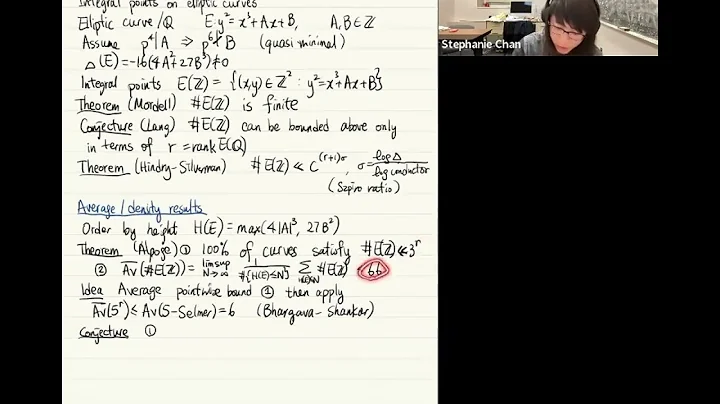 Integral points on elliptic curves
Elliptic curve/Q E: y²=x³+Ax+B, A,B∈ℤ
Assume p⁴|A ⇒ p⁶∤B (quasi-minimal)
Δ(E)=-16(4A³+27B²)≠0
Integral points E(ℤ) = {(x,y)∈ℤ² : y²=x³+Ax+B}
Theorem (Mordell) #E(ℤ) is finite
Conjecture (Lang) #E(ℤ) can be bounded above only
in terms of r = rank E(ℚ)
Theorem (Hindry-Silverman) #E(ℤ) ≪ C^{(r+1)σ}, σ = log Δ / log conductor
(Szpiro ratio)
Average/density results
Order by height H(E) = max(4|A|³, 27B²)
Theorem (Alpoge) ① 100% of curves satisfy #E(ℤ) ≪ 3^r
② Av(#E(ℤ)) = limsup N→∞ 1/#{H(E)≤N} Σ H(E)≤N #E(ℤ) < 66
Idea Average pointwise bound ① then apply
Av(5^r) ≤ Av(5-Selmer) = 6 (Bhargava-Shankar)
Conjecture ①
Stephanie Chan